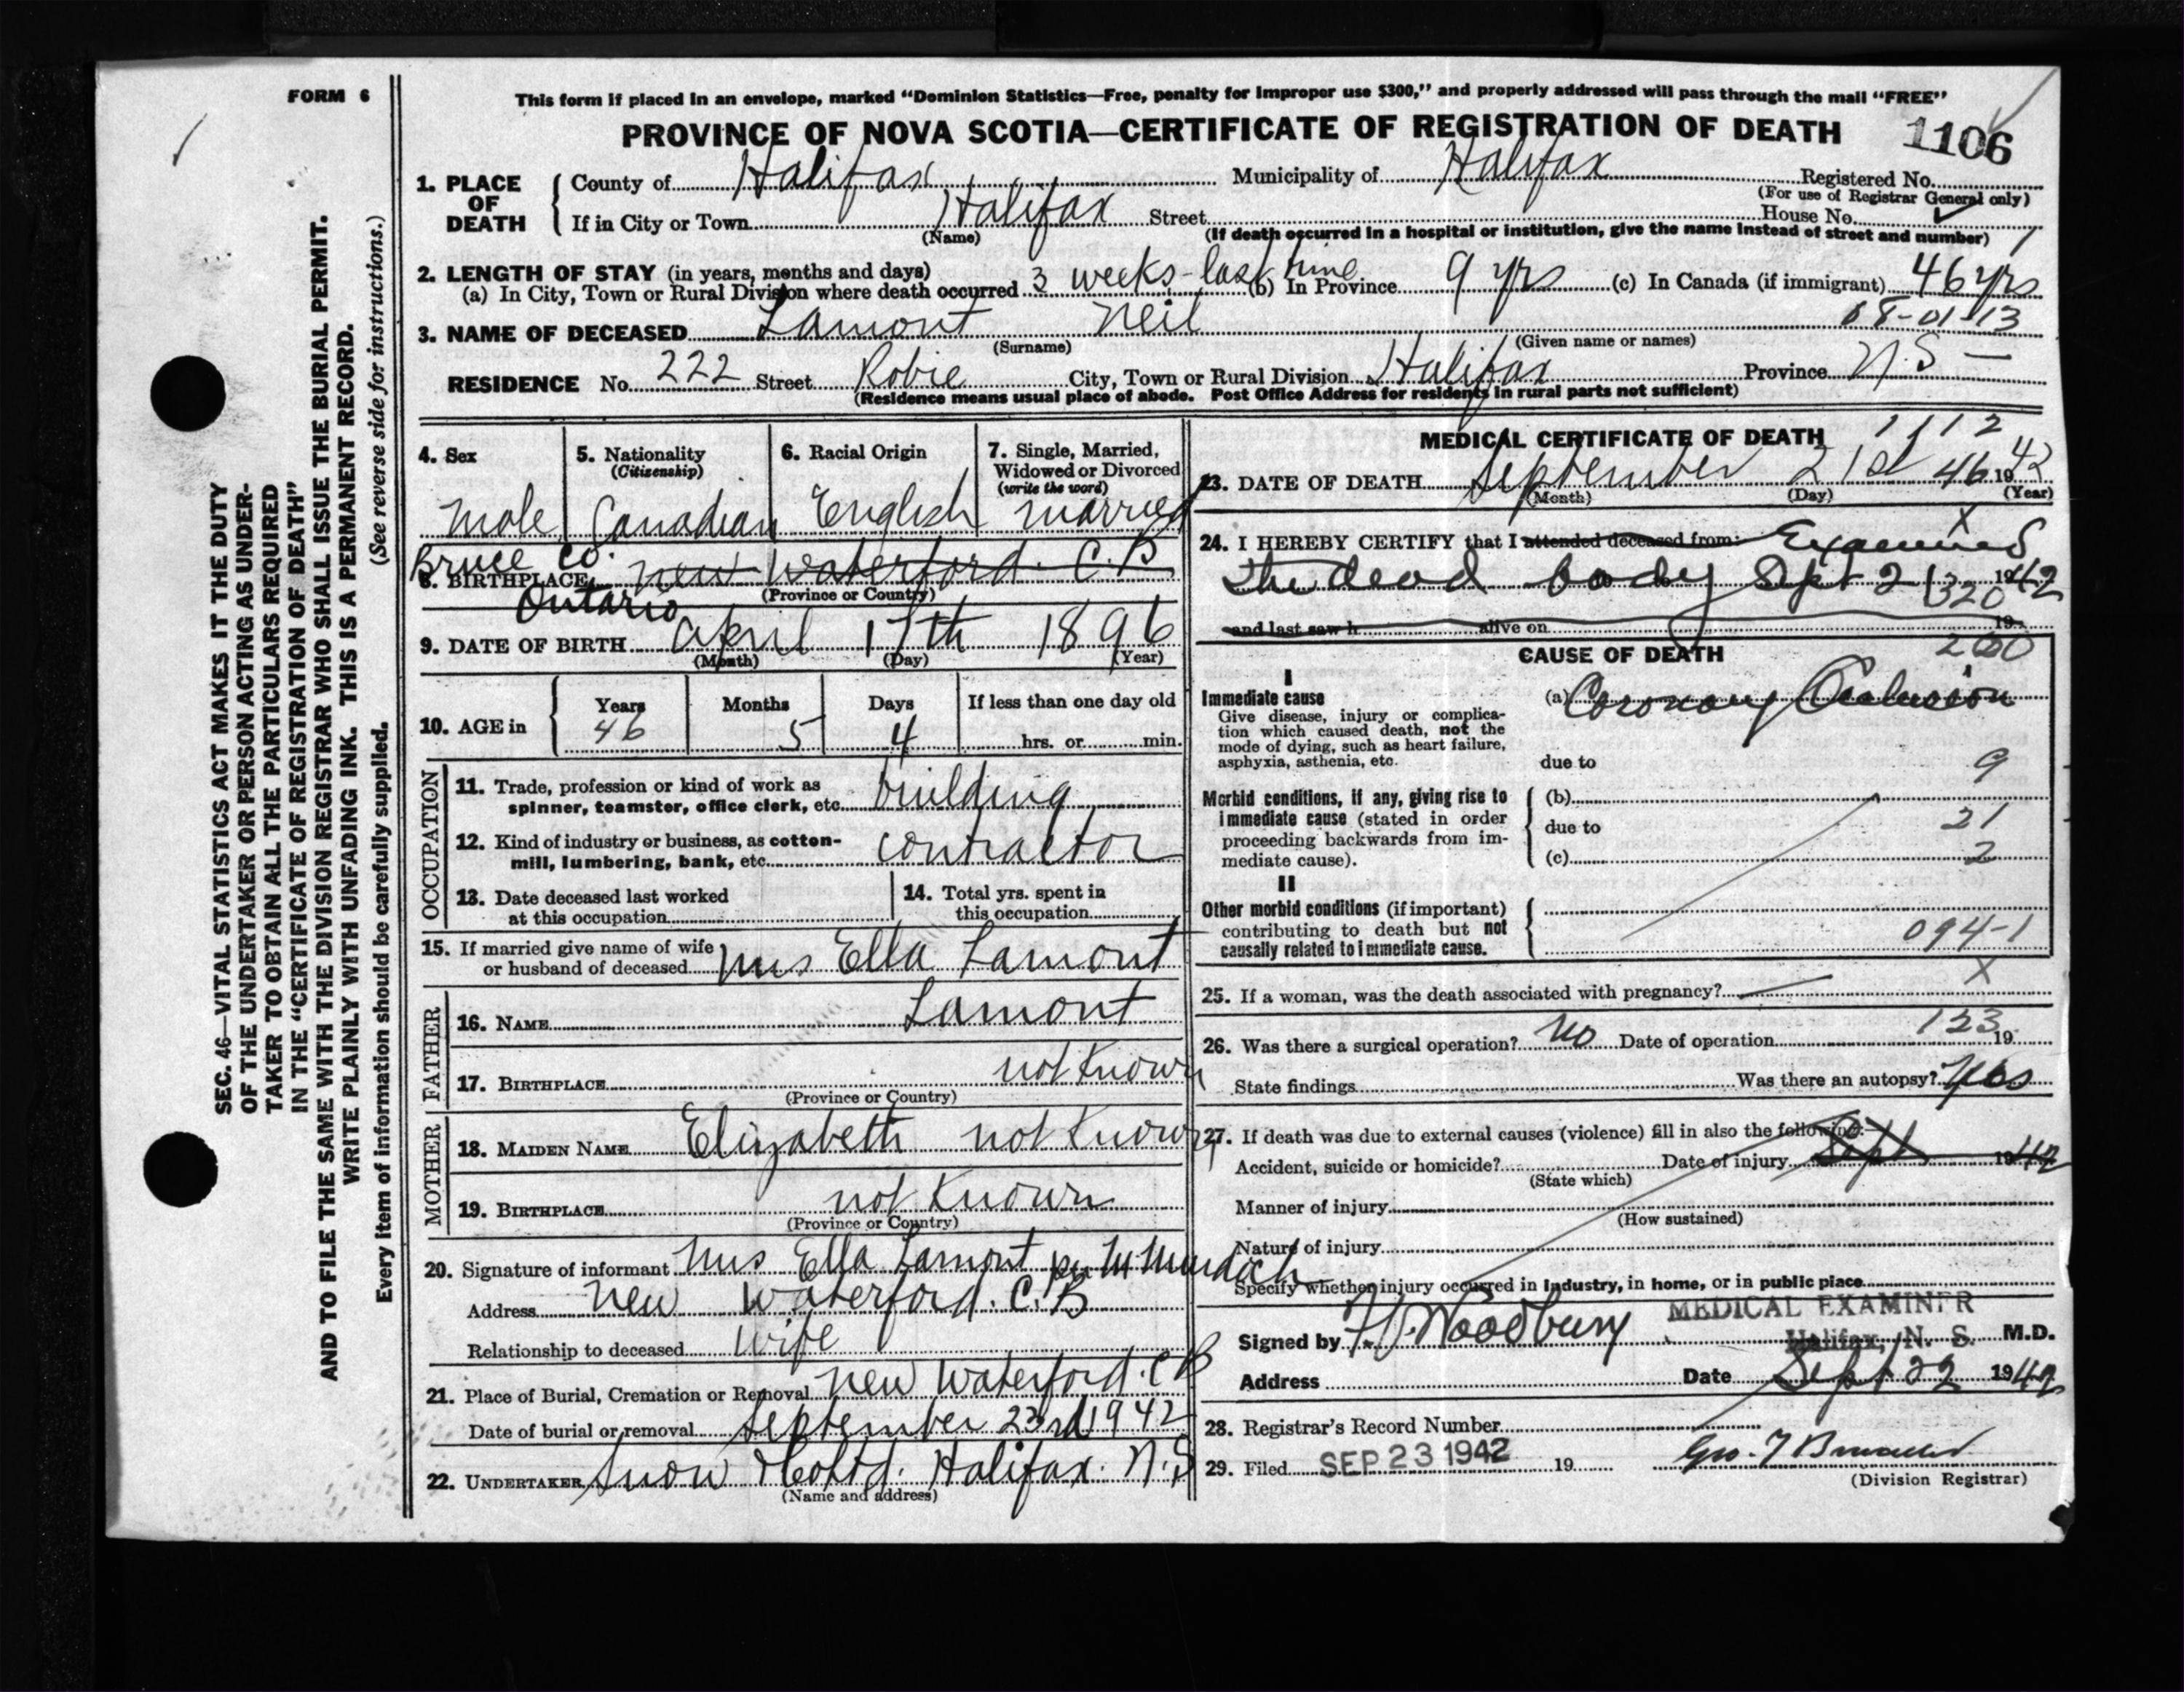 FORM 6
This form if placed in an envelope, marked “Dominion Statistics—Free, penalty for improper use $300,” and properly addressed will pass through the mail “FREE”
PROVINCE OF NOVA SCOTIA—CERTIFICATE OF REGISTRATION OF DEATH 1106
1. PLACE OF DEATH County of Halifax Municipality of Halifax Registered No.
(For use of Registrar General only)
If in City or Town Halifax Street House No.
(Name) (If death occurred in a hospital or institution, give the name instead of street and number) 1
2. LENGTH OF STAY (in years, months and days)
(a) In City, Town or Rural Division where death occurred 3 weeks-last time (b) In Province 9 yrs (c) In Canada (if immigrant) 46 yrs
08-01-13
3. NAME OF DECEASED Lamont Neil
(Surname) (Given name or names)
RESIDENCE No. 222 Street Robie City, Town or Rural Division Halifax Province N.S —
(Residence means usual place of abode. Post Office Address for residents in rural parts not sufficient)
4. Sex
Male
5. Nationality
(Citizenship)
Canadian
6. Racial Origin
English
7. Single, Married,
Widowed or Divorced
(write the word)
Married
Bruce Co.
8. BIRTHPLACE New Waterford. C.B
Ontario (Province or Country)
9. DATE OF BIRTH April 17th 1896
(Month) (Day) (Year)
10. AGE in Years Months Days If less than one day old
46 5 4 hrs. or min.
OCCUPATION
11. Trade, profession or kind of work as
spinner, teamster, office clerk, etc. building
12. Kind of industry or business, as cotton-
mill, lumbering, bank, etc. contractor
13. Date deceased last worked
at this occupation
14. Total yrs. spent in
this occupation
15. If married give name of wife
or husband of deceased Mrs Ella Lamont
FATHER
16. NAME Lamont
17. BIRTHPLACE not known
(Province or Country)
MOTHER
18. MAIDEN NAME Elizabeth not known
19. BIRTHPLACE not known
(Province or Country)
20. Signature of informant Mrs Ella Lamont per M Murdoch
Address New Waterford. C.B
Relationship to deceased wife
21. Place of Burial, Cremation or Removal New Waterford. C B
Date of burial or removal September 23rd 1942
22. UNDERTAKER Snow & Co Ltd. Halifax. N.S
(Name and address)
MEDICAL CERTIFICATE OF DEATH 1112
23. DATE OF DEATH September 21st 46 1942
(Month) (Day) (Year)
X
24. I HEREBY CERTIFY that I attended deceased from: Examined
the dead body Sept 21 1942
320
and last saw h alive on 19
CAUSE OF DEATH 200
I
Immediate cause
Give disease, injury or complica-
tion which caused death, not the
mode of dying, such as heart failure,
asphyxia, asthenia, etc.
(a) Coronary Occlusion
due to 9
Morbid conditions, if any, giving rise to
immediate cause (stated in order
proceeding backwards from im-
mediate cause).
(b)
due to 21
(c) 2
II
Other morbid conditions (if important)
contributing to death but not
causally related to immediate cause.
094-1
X
25. If a woman, was the death associated with pregnancy?
123
26. Was there a surgical operation? No Date of operation 19
State findings Was there an autopsy? Yes
27. If death was due to external causes (violence) fill in also the following:—
Accident, suicide or homicide? Date of injury Sept 1942
(State which)
Manner of injury
(How sustained)
Nature of injury
Specify whether injury occurred in industry, in home, or in public place
MEDICAL EXAMINER
Signed by Woodbury Halifax, N. S. M.D.
Address Date Sept 22 1942
28. Registrar's Record Number
29. Filed SEP 23 1942 19
(Division Registrar)
SEC. 46—VITAL STATISTICS ACT MAKES IT THE DUTY
OF THE UNDERTAKER OR PERSON ACTING AS UNDER-
TAKER TO OBTAIN ALL THE PARTICULARS REQUIRED
IN THE “CERTIFICATE OF REGISTRATION OF DEATH”
AND TO FILE THE SAME WITH THE DIVISION REGISTRAR WHO SHALL ISSUE THE BURIAL PERMIT.
WRITE PLAINLY WITH UNFADING INK. THIS IS A PERMANENT RECORD.
Every item of information should be carefully supplied. (See reverse side for instructions.)